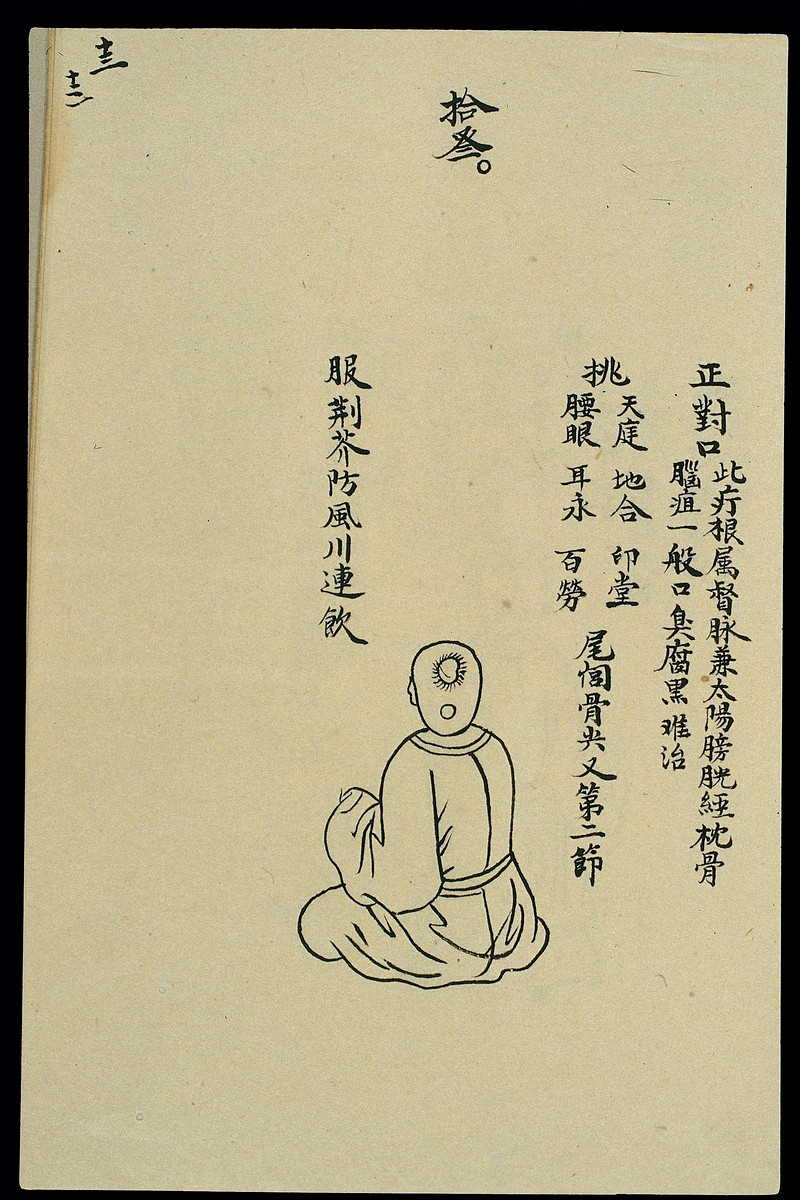 拾叁。
正對口
此疔根属督脉兼太陽膀胱經枕骨
腦疽一般口臭腐黑难治
挑
天庭 地合 印堂
腰眼 耳永 百勞
尾闾骨尖又第二節
服荆芥防風川連飲
十三
十三